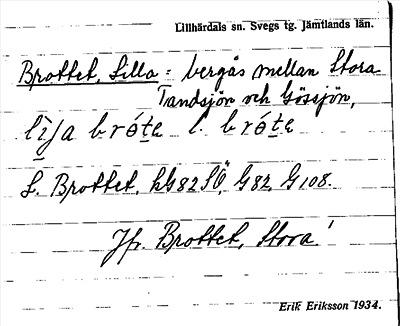 Lillhärdals sn. Svegs tg. Jämtlands län.
Brottet, Lilla = bergås mellan Stora
Tandsjön och Gössjön,
L. Brottet, hG82SÖ, G82, G108.
Jfr. Brottet, Stora!
Erik Eriksson 1934.